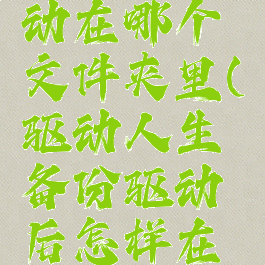 动在哪个
文件夹里(
驱动人生
备份驱动
后怎样在